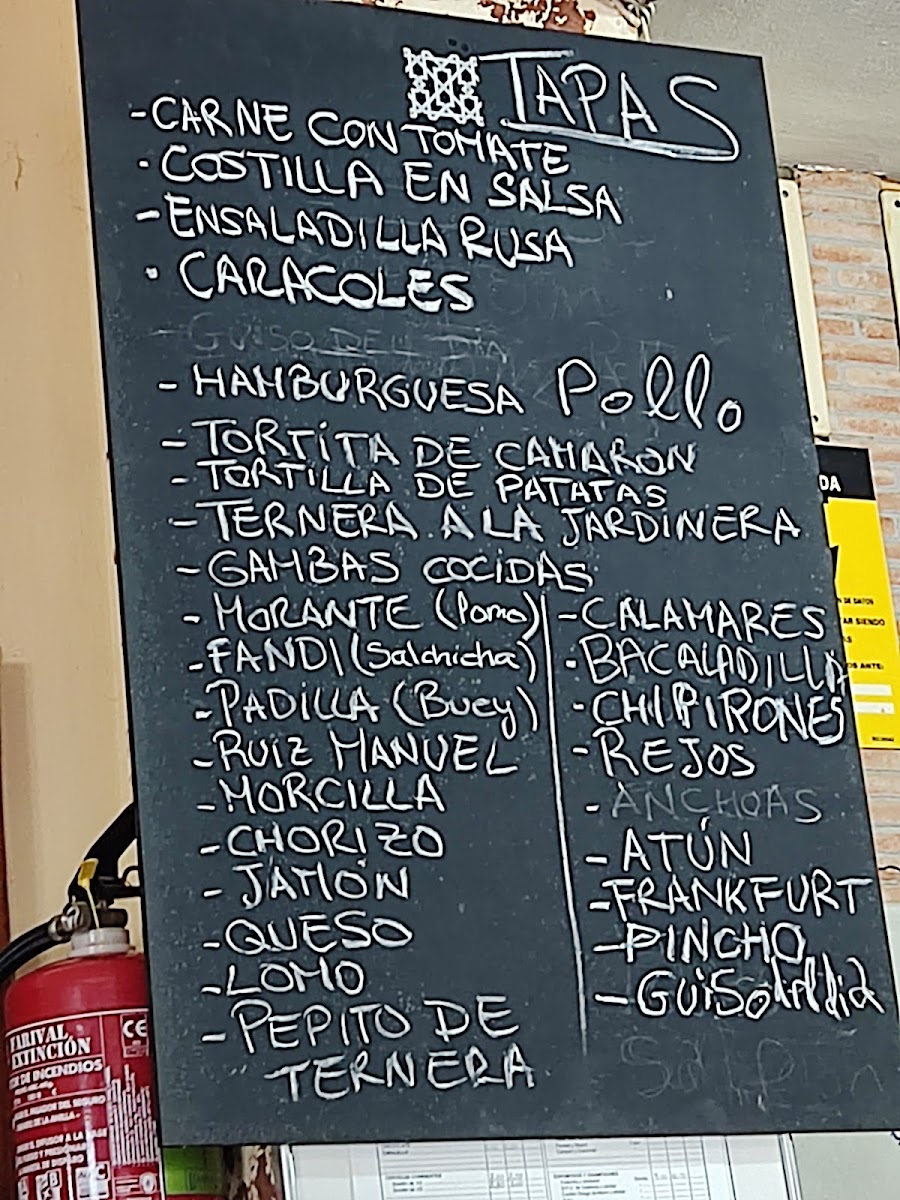 TAPAS
-CARNE CON TOMATE
·COSTILLA EN SALSA
-ENSALADILLA RUSA
·CARACOLES
-GUISO DEL DIA
-HAMBURGUESA Pollo
-TORTITA DE CAMARON
-TORTILLA DE PATATAS
-TERNERA A LA JARDINERA
-GAMBAS COCIDAS
-MORANTE (Lomo)
-FANDI (Salchicha)
-PADILLA (Buey)
-RUIZ MANUEL
-MORCILLA
-CHORIZO
-JAMÓN
-QUESO
-LOMO
-PEPITO DE
TERNERA
-CALAMARES
·BACALADILLA
-CHIPIRONES
-REJOS
-ANCHOAS
-ATÚN
-FRANKFURT
-PINCHO
-GUISO del dia
DA
DE DATOS
AR SIENDO
OS ANTE:
EXTINCIÓN
DE INCENDIOS
CE